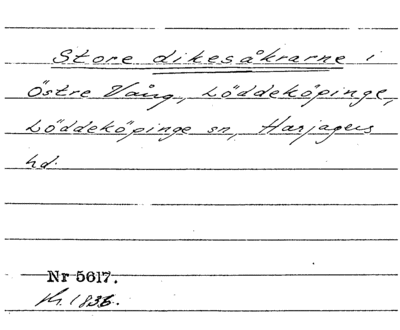 Store dikesåkrarne i
Östre Vång, Löddeköpinge,
Löddeköpinge sn, Harjagers
hd.
Nr 5617.
1836.